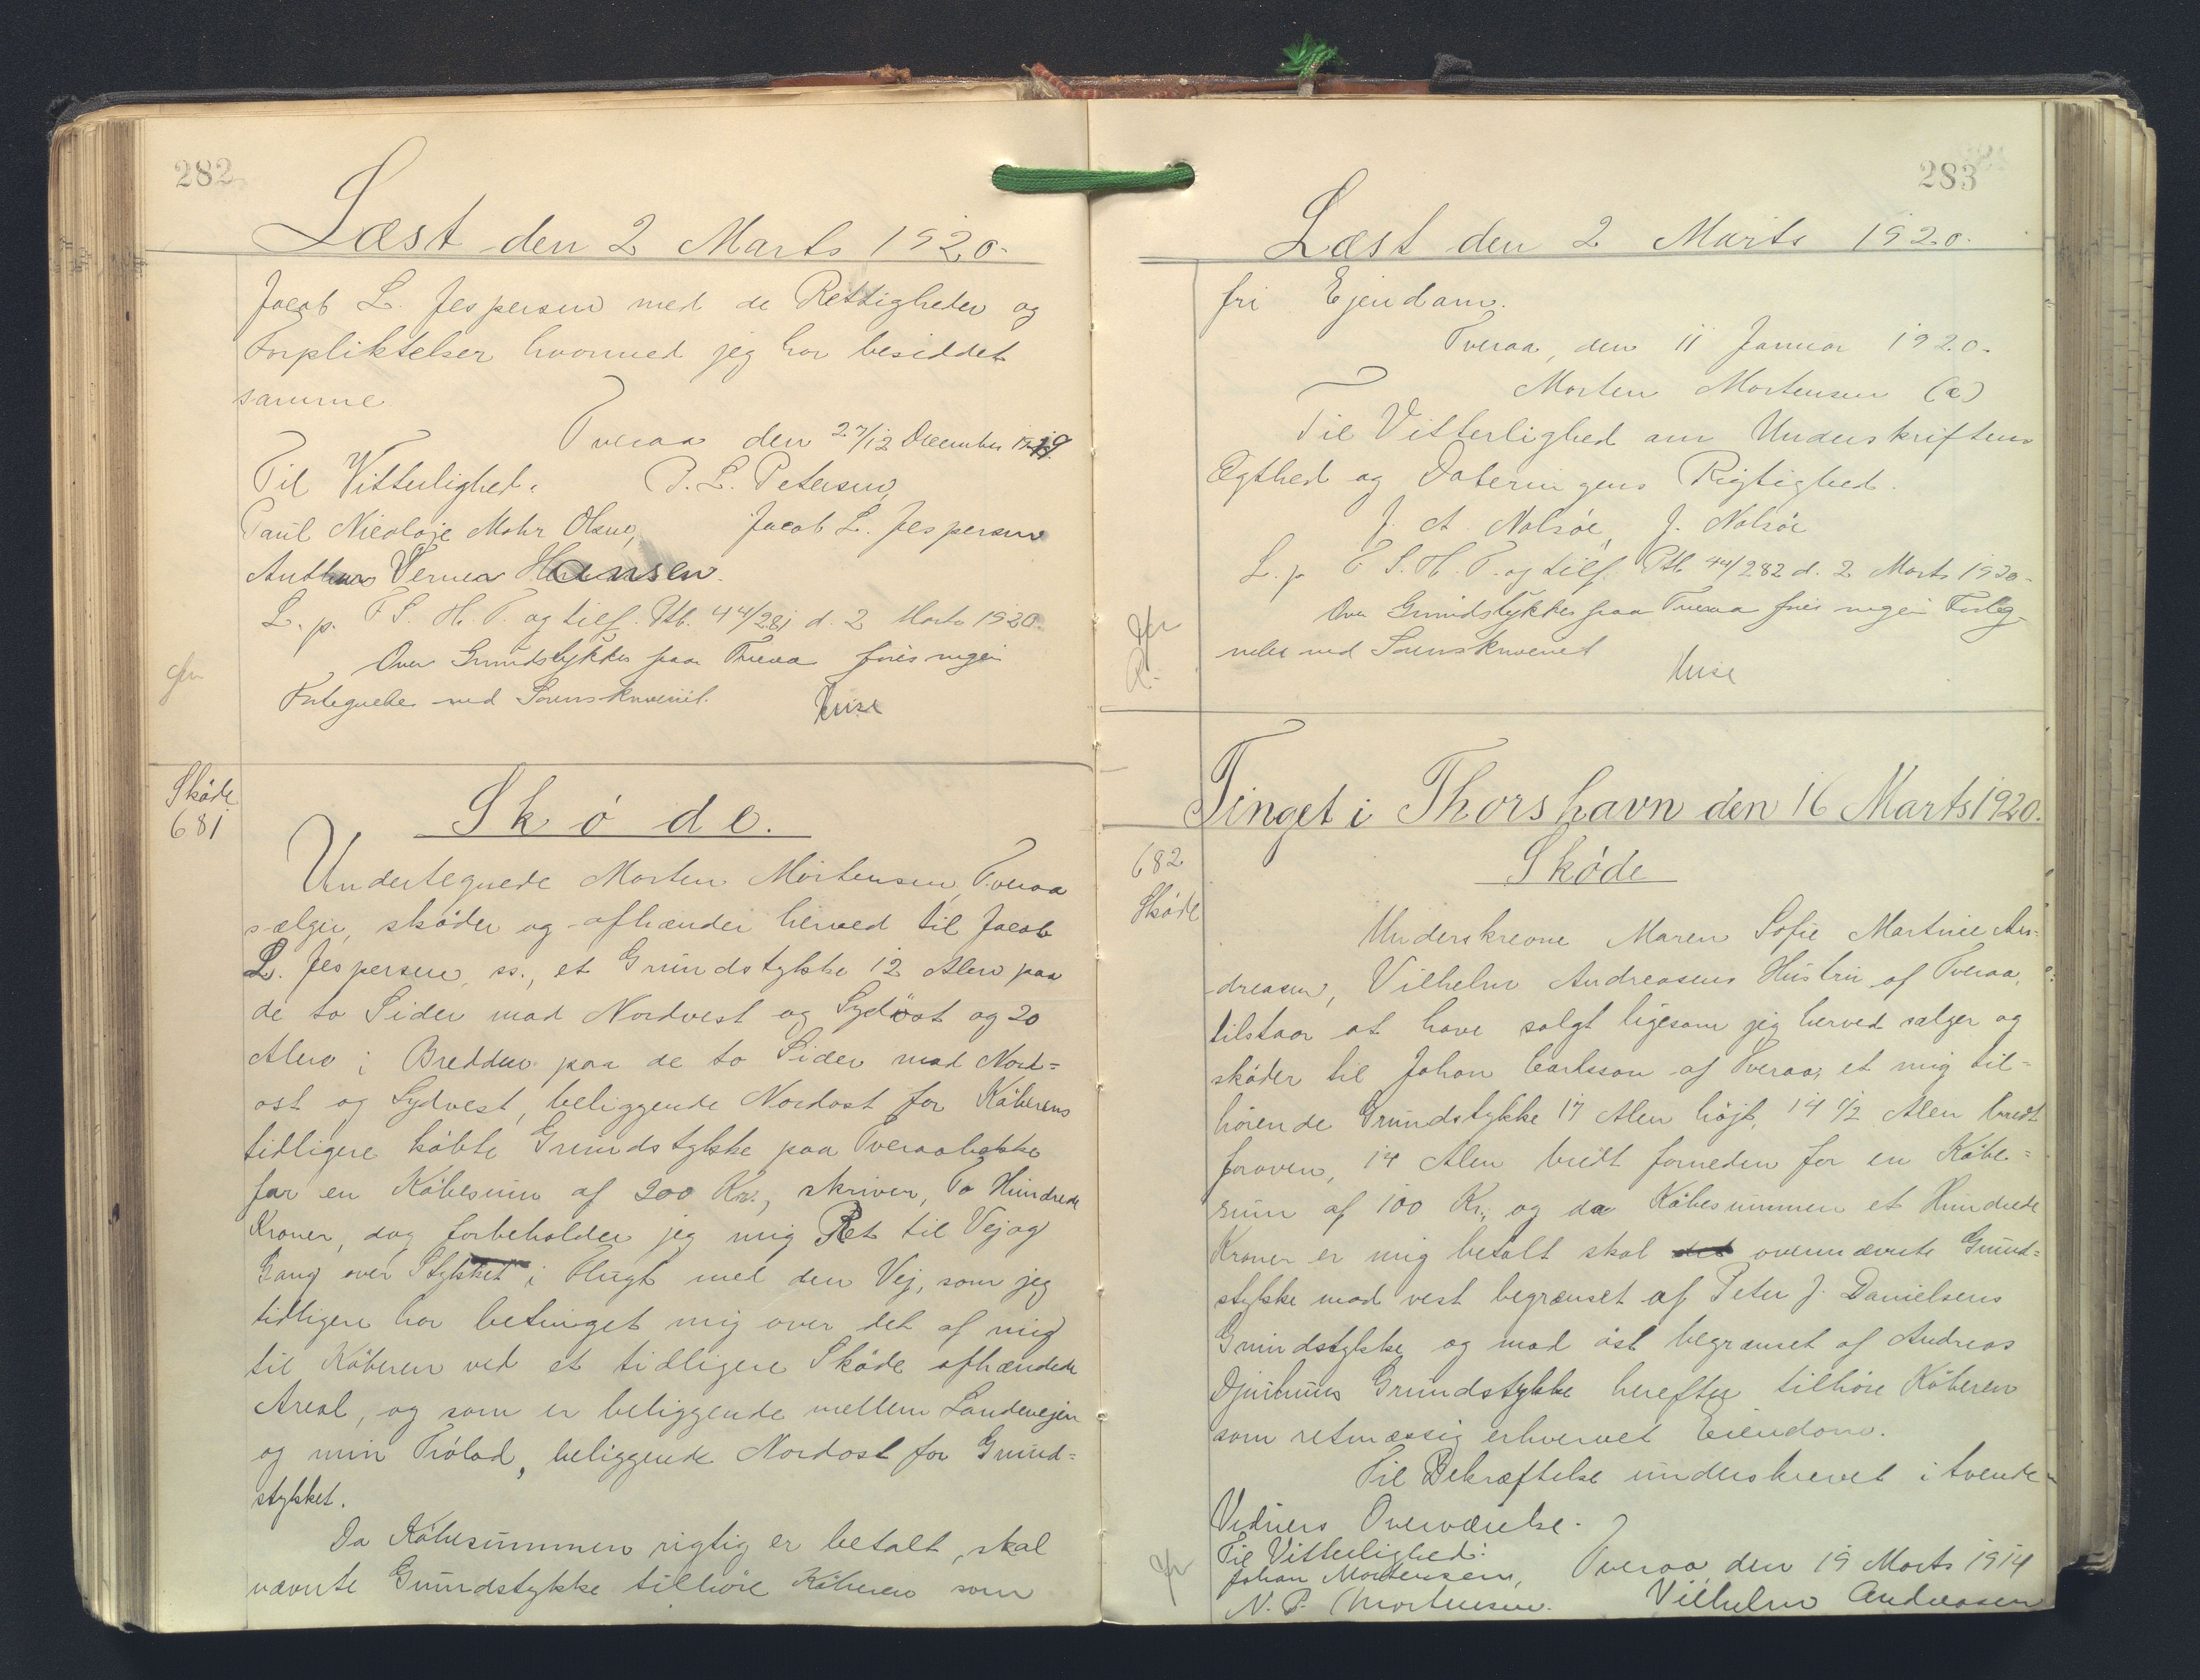 282
Læst den 2 Marts 1920.
Jacob L. Jespersen med de Rettigheder og
Forpliktelser hvormed jeg har besiddet
samme
Tveraa den 27/12 December 1919.
Til Vitterlighed. P. L. Petersen,
Paul Nicoloje Mohr Olsen, Jacob L. Jespersen
Arthur Verner Hansen.
L. p. F. S. H. T. og tilf. Ptb. 44/281 d. 2 Marts 1920.
Over Grundstykker paa Tveraa føres ingen
Fortegnelse ved Sorenskriveriet.
Skøde
681
Skøde.
Undertegnede Morten Mortensen, Tveraa
sælger, skøder og afhænder herved til Jacob
L. Jespersen, ss., et Grundstykke 12 Alen paa
de to Sider mod Nordvest og Sydøst og 20
Alen i Bredden paa de to Sider mod Nord=
ost og Sydvest, beliggende Nordost for Køberens
tidligere købte Grundstykke paa Tveraabakke
for en Købesum af 200 Kr., skriver, To Hundrede
Kroner, dog forbeholder jeg mig Ret til Vej og
Gang over Stykket i Flugt med den Vej, som jeg
tidligere har betinget mig over det af mig
til Køberen ved et tidligere Skøde afhændede
Areal, og som er beliggende mellem Landevejen
og min Trølad, beliggende Nordost for Grund=
stykket.
Da Købesummen rigtig er betalt, skal
nævnte Grundstykke tilhøre Køberen som
283
Læst den 2 Marts 1920.
fri Ejendom.
Tveraa, den 11 Januar 1920.
Morten Mortensen (e)
Til Vitterlighed om Underskriftens
Ægthed og Dateringens Rigtighed.
J. A Nolsøe, J. Nolsøe
L. p. F. S. H. T. og tilf. Ptb 44/282 d. 2 Marts 1920.
Over Grundstykker paa Tveraa føres ingen Forteg
nelse ved Sorenskriveriet
Tinget i Thorshavn den 16 Marts 1920.
682
Skøde
Skøde
Underskrevne Maren Sofie Martine An=
dreasen, Vilhelm Andreasens Hustru af Tveraa,
tilstaar at have solgt ligesom jeg herved sælger og
skøder til Johan Carlsson af Tveraa, et mig til=
hørende Grundstykke 17 Alen højt, 14 1/2 Alen bredt
foroven, 14 Alen bredt forneden for en Købe=
sum af 100 Kr., og da Købesummen et Hundrede
Kroner er mig betalt skal det ovennævnte Grund=
stykke mod vest begrænset af Peter J. Danielsens
Grundstykke og mod øst begrænset af Andreas
Djurhuus Grundstykke herefter tilhøre Køberen
som retmæssig erhvervet Eiendom.
Til Bekræftelse underskrevet i tvende
Vidners Overværelse.
Til Vitterlighed: Tveraa, den 19 Marts 1914
Johan Mortensen, Vilhelm Andreasen
N. P. Mortensen.